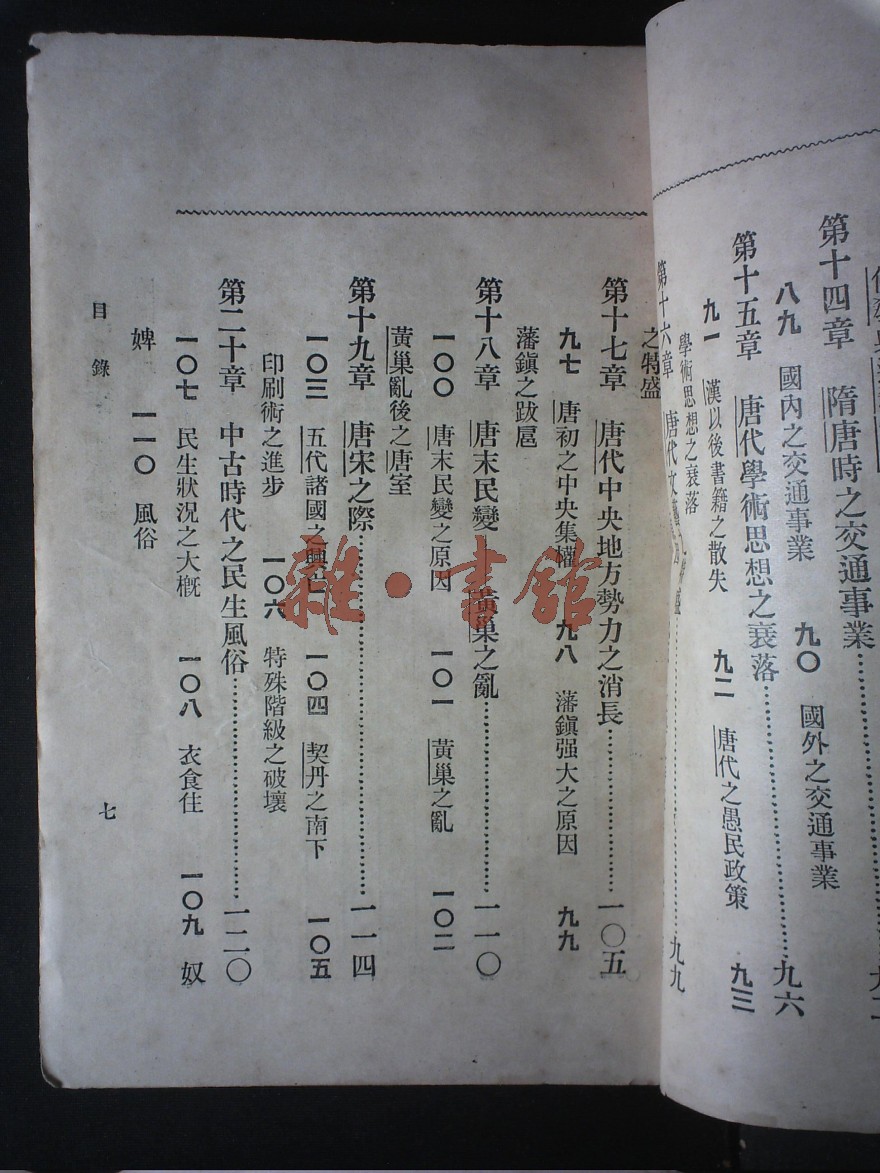 第十四章　隋唐時之交通事業……
八九　國內之交通事業　九〇　國外之交通事業
第十五章　唐代學術思想之衰落……九六
九一　漢以後書籍之散失　九二　唐代之愚民政策　九三
學術思想之衰落
第十六章　唐代文藝之特盛……九九
之特盛
第十七章　唐代中央地方勢力之消長……一〇五
九七　唐初之中央集權　九八　藩鎮强大之原因　九九
藩鎮之跋扈
第十八章　唐末民變　黃巢之亂……一一〇
一〇〇　唐末民變之原因　一〇一　黃巢之亂　一〇二
黃巢亂後之唐室
第十九章　唐宋之際……一一四
一〇三　五代諸國之興亡　一〇四　契丹之南下　一〇五
印刷術之進步　一〇六　特殊階級之破壞
第二十章　中古時代之民生風俗……一二〇
一〇七　民生狀況之大概　一〇八　衣食住　一〇九　奴
婢　一一〇　風俗
目錄
七
雜·書館